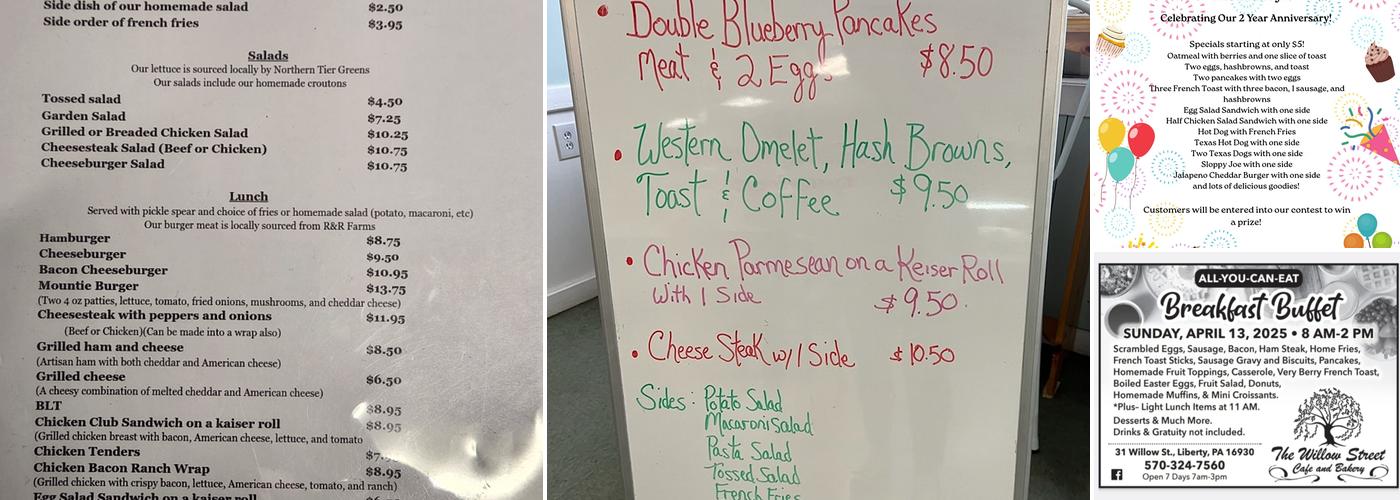 Side dish of our homemade salad $2.50
Side order of french fries $3.95
Salads
Our lettuce is sourced locally by Northern Tier Greens
Our salads include our homemade croutons
Tossed salad $4.50
Garden Salad $7.25
Grilled or Breaded Chicken Salad $10.25
Cheesesteak Salad (Beef or Chicken) $10.75
Cheeseburger Salad $10.75
Lunch
Served with pickle spear and choice of fries or homemade salad (potato, macaroni, etc)
Our burger meat is locally sourced from R&R Farms
Hamburger $8.75
Cheeseburger $9.50
Bacon Cheeseburger $10.95
Mountie Burger $13.75
(Two 4 oz patties, lettuce, tomato, fried onions, mushrooms, and cheddar cheese)
Cheesesteak with peppers and onions $11.95
(Beef or Chicken)(Can be made into a wrap also)
Grilled ham and cheese $8.50
(Artisan ham with both cheddar and American cheese)
Grilled cheese $6.50
(A cheesy combination of melted cheddar and American cheese)
BLT $8.95
Chicken Club Sandwich on a kaiser roll $8.95
(Grilled chicken breast with bacon, American cheese, lettuce, and tomato
Chicken Tenders
Chicken Bacon Ranch Wrap $8.95
(Grilled chicken with crispy bacon, lettuce, American cheese, tomato, and ranch)
Egg Salad Sandwich on a kaiser roll
Double Blueberry Pancakes
Meat & 2 Eggs $8.50
Western Omelet, Hash Browns,
Toast & Coffee $9.50
Chicken Parmesean on a Keiser Roll
With 1 Side $9.50
Cheese Steak w/1 Side $10.50
Sides: Potato Salad
Macaroni Salad
Pasta Salad
Tossed Salad
French Fries
Celebrating Our 2 Year Anniversary!
Specials starting at only $5!
Oatmeal with berries and one slice of toast
Two eggs, hashbrowns, and toast
Two pancakes with two eggs
Three French Toast with three bacon, 1 sausage, and
hashbrowns
Egg Salad Sandwich with one side
Half Chicken Salad Sandwich with one side
Hot Dog with French Fries
Texas Hot Dog with one side
Two Texas Dogs with one side
Sloppy Joe with one side
Jalapeno Cheddar Burger with one side
and lots of delicious goodies!
Customers will be entered into our contest to win
a prize!
ALL-YOU-CAN-EAT
Breakfast Buffet
SUNDAY, APRIL 13, 2025 • 8 AM-2 PM
Scrambled Eggs, Sausage, Bacon, Ham Steak, Home Fries,
French Toast Sticks, Sausage Gravy and Biscuits, Pancakes,
Homemade Fruit Toppings, Casserole, Very Berry French Toast,
Boiled Easter Eggs, Fruit Salad, Donuts,
Homemade Muffins, & Mini Croissants.
*Plus- Light Lunch Items at 11 AM.
Desserts & Much More.
Drinks & Gratuity not included.
31 Willow St., Liberty, PA 16930
570-324-7560
Open 7 Days 7am-3pm
The Willow Street
Cafe and Bakery